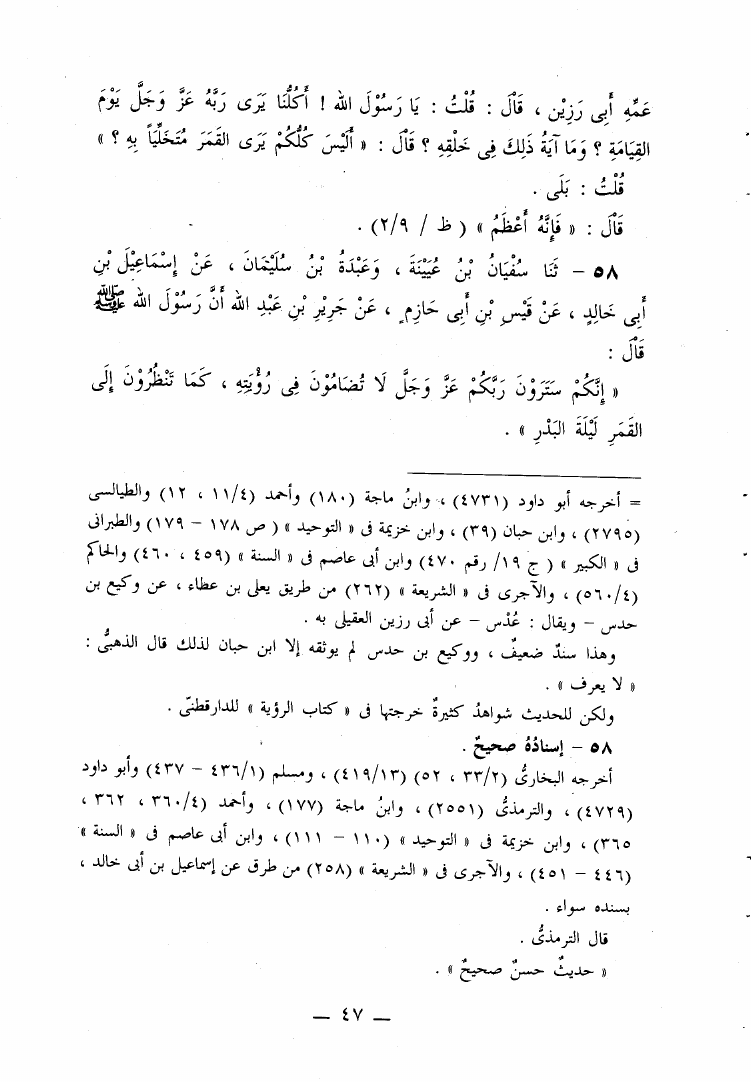 عَمِّهِ أَبِى رَزِيْن ، قَالَ : قُلْتُ : يَا رَسُوْلَ الله ! أَكُلُّنَا يَرَى رَبَّهُ عَزَّ وَجَلَّ يَوْمَ
القِيَامَةِ ؟ وَمَا آيَةُ ذَلِكَ فِى خَلْقِهِ ؟ قَالَ : « أَلَيْسَ كُلُّكُمْ يَرَى القَمَرَ مُتَخَلِّيَاً بِهِ ؟ »
قُلْتُ : بَلَى .
قَالَ : « فَإِنَّهُ أَعْظَمُ » ( ظ / ٢/٩) .
٥٨ - ثَنَا سُفْيَانُ بْنُ عُيَيْنَةَ ، وَعَبْدَةُ بْنُ سُلَيْمَانَ ، عَنْ إِسْمَاعِيْلَ بْنِ
أَبِى خَالِدٍ ، عَنْ قَيْسِ بْنِ أَبِى حَازِمٍ ، عَنْ جَرِيْرِ بْنِ عَبْدِ الله أَنَّ رَسُوْلَ الله ﷺ
قَالَ :
« إِنَّكُمْ سَتَرَوْنَ رَبَّكُمْ عَزَّ وَجَلَّ لَا تُضَامُوْنَ فِى رُؤْيَتِهِ ، كَمَا تَنْظُرُوْنَ إِلَى
القَمَرِ لَيْلَةَ البَدْرِ » .
= أخرجه أبو داود (٤٧٣١) ، وابنُ ماجة (١٨٠) وأحمد (١١/٤ ، ١٢) والطيالسى
(٢٧٩٥) ، وابن حبان (٣٩) ، وابن خزيمة فى « التوحيد » ( ص ١٧٨ - ١٧٩) والطبرانى
فى « الكبير » ( ج ١٩/ رقم ٤٧٠) وابن أبى عاصم فى « السنة » (٤٥٩ ، ٤٦٠) والحاكم
(٥٦٠/٤) ، والآجرى فى « الشريعة » (٢٦٢) من طريق يعلى بن عطاء ، عن وكيع بن
حدس - ويقال : عُدْس - عن أبى رزين العقيلى به .
وهذا سندٌ ضعيفٌ ، ووكيع بن حدس لم يوثقه إلا ابن حبان لذلك قال الذهبىُّ :
« لا يعرف » .
ولكن للحديث شواهدُ كثيرةٌ خرجتها فى « كتاب الرؤية » للدارقطنىّ .
٥٨ - إسنادُهُ صحيحٌ .
أخرجه البخارىُّ (٣٣/٢ ، ٥٢) (٤١٩/١٣) ، ومسلم (٤٣٦/١ - ٤٣٧) وأبو داود
(٤٧٢٩) ، والترمذىُّ (٢٥٥١) ، وابنُ ماجة (١٧٧) ، وأحمد (٣٦٠/٤ ، ٣٦٢ ،
٣٦٥) ، وابن خزيمة فى « التوحيد » (١١٠ - ١١١) ، وابن أبى عاصم فى « السنة »
(٤٤٦ - ٤٥١) ، والآجرى فى « الشريعة » (٢٥٨) من طرق عن إسماعيل بن أبى خالد ،
بسنده سواء .
قال الترمذىُّ .
« حديثٌ حسنٌ صحيحٌ » .
— ٤٧ —